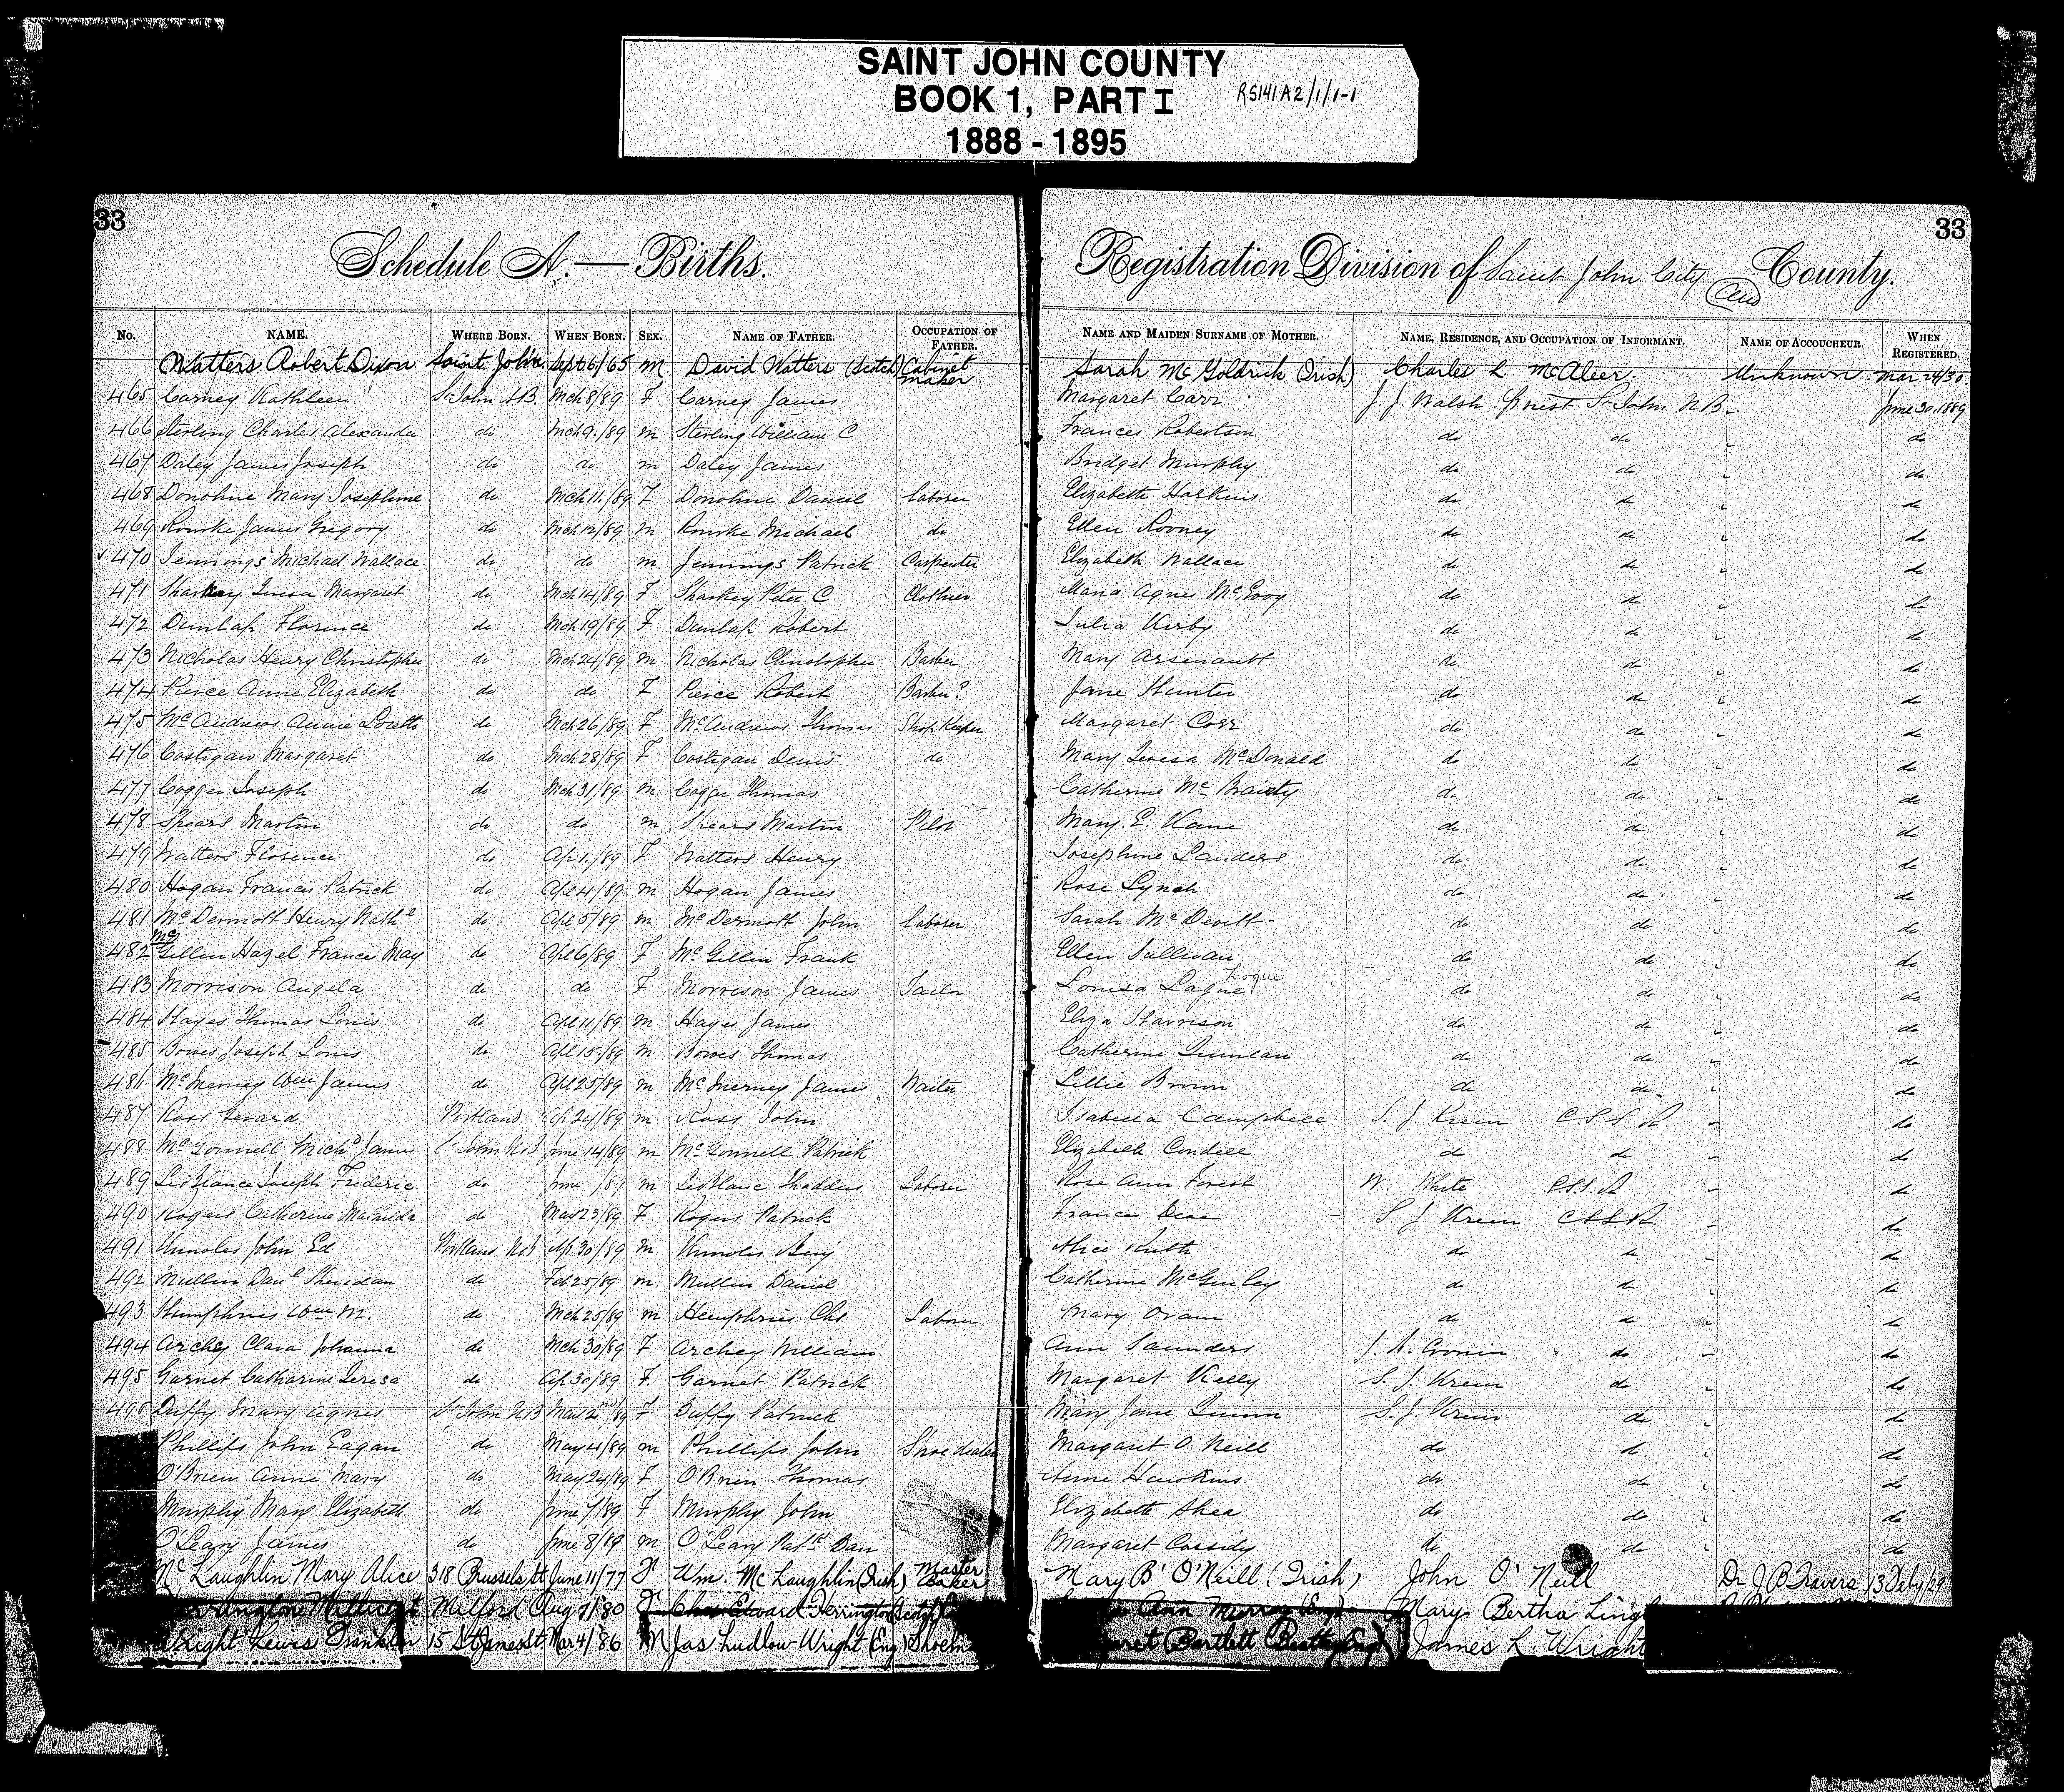 SAINT JOHN COUNTY
BOOK 1, PART I RS141A2/1/1-1
1888 - 1895
33 33
Schedule A.—Births. Registration Division of Saint John City and County.
No. NAME. WHERE BORN. WHEN BORN. SEX. NAME OF FATHER. OCCUPATION OF FATHER. NAME AND MAIDEN SURNAME OF MOTHER. NAME, RESIDENCE, AND OCCUPATION OF INFORMANT. NAME OF ACCOUCHEUR. WHEN REGISTERED.
Watters Robert Dixon Saint John Sept 6/65 M David Watters (Scotch) Cabinet maker Sarah McGoldrick (Irish) Charles L McAleer Unknown Mar 24/30
465 Carney Kathleen St John NB. Mch 8/89 F Carney James Margaret Carr J. J. Walsh Priest St John NB June 30, 1889
466 Sterling Charles Alexander do Mch 9./89 m Sterling William C Frances Robertson do do do
467 Daley James Joseph do do m Daley James Bridget Murphy do do do
468 Donohue Mary Josephine do Mch 11/89 F Donohue Daniel Laborer Elizabeth Harkins do do do
469 Rourke James Gregory do Mch 12/89 m Rourke Michael do Ellen Rooney do do do
470 Jennings Michael Wallace do do m Jennings Patrick Carpenter Elizabeth Wallace do do do
471 Sharkey Teresa Margaret do Mch 14/89 F Sharkey Peter C Clothier Maria Agnes McEvoy do do do
472 Dunlap Florence do Mch 19/89 F Dunlap Robert Julia Kirby do do do
473 Nicholas Henry Christopher do Mch 24/89 m Nicholas Christopher Barber Mary Arsenault do do do
474 Pierce Anne Elizabeth do do F Pierce Robert Barber? Jane Hunter do do do
475 McAndrews Annie Loretto do Mch 26/89 F McAndrews Thomas Shop Keeper Margaret Corr do do do
476 Costigan Margaret do Mch 28/89 F Costigan Denis do Mary Teresa McDonald do do do
477 Cogger Joseph do Mch 31/89 m Cogger Thomas Catherine McBrairty do do do
478 Spears Martin do do m Spears Martin Pilot Mary E. Kane do do do
479 Watters Florence do Ap 1./89 F Watters Henry Josephine Landers do do do
480 Hogan Francis Patrick do Apl 4/89 m Hogan James Rose Lynch do do do
481 McDermott Henry Nathl do Apl 5/89 m McDermott John Laborer Sarah McDevitt do do do
482 McGillin Hazel France May do Apl 6/89 F McGillin Frank Ellen Sullivan do do do
483 Morrison Angela do do F Morrison James Tailor Louisa Lague? Logue do do do
484 Hayes Thomas Louis do Apl 11/89 m Hayes James Eliza Harrison do do do
485 Bowes Joseph Louis do Apl 15/89 m Bowes Thomas Catherine Quinlan do do do
486 McInerney Wm James do Apl 25/89 m McInerney James Waiter Lillie Brown do do do
487 Ross Gerard Portland Ap 24/89 m Ross John Isabella Campbell S. J. Krein C.S.S.R do
488 McGonnell Michd James St John NB June 14/89 m McGonnell Patrick Elizabeth Condell do do do
489 LeBlance Joseph Frederic do June /89 m LeBlanc Thaddeus Laborer Rose Ann Forest W. White C.S.S.R do
490 Rogers Catherine Mathilda do Mar 23/89 F Rogers Patrick S. J. Krein CSSR do
491 Knowles John Ed Portland NB Ap 30/89 m Knowles Benj Alice Ruth do do do
492 Mullin Danl Sheridan do Feb 25/89 m Mullin Daniel Catherine McGinley do do do
493 Humphries Wm M. do Mch 25/89 m Humphries Chs Laborer Mary Oram do do do
494 Archey Clara Johanna do Mch 30/89 F Archey William Ann Saunders Cronin do do
495 Garnet Catharine Teresa do Ap 30/89 F Garnet Patrick Margaret Kelly S. J. Krein do do
Duffy Mary Agnes St John NB Mar 2nd/89 F Duffy Patrick Mary Jane Quinn S. J. Krein do do
Phillips John Eagan do May 4/89 m Phillips John Shoe dealer Margaret O'Neill do do do
O'Brien Anne Mary do May 24/89 F O'Brien Thomas Anne Hawkins do do do
Murphy Mary Elizabeth do June 7/89 F Murphy John Elizabeth Shea do do do
O'Leary James do June 8/89 m O'Leary Patk Dan Margaret Cassidy do do do
McLaughlin Mary Alice 318 Brussels St June 11/77 F Wm. McLaughlin (Irish) Master Baker Mary B' O'Neill (Irish) John O'Neill Dr J B Travers 13 Feby/29
Millicent Milford Aug 7/80 F Edward Herrington Ann Murray Mary Bertha
Wright Lewis Franklin 15 St James St. Mar 4/86 M Jas Ludlow Wright (Eng) Bartlett James L. Wright